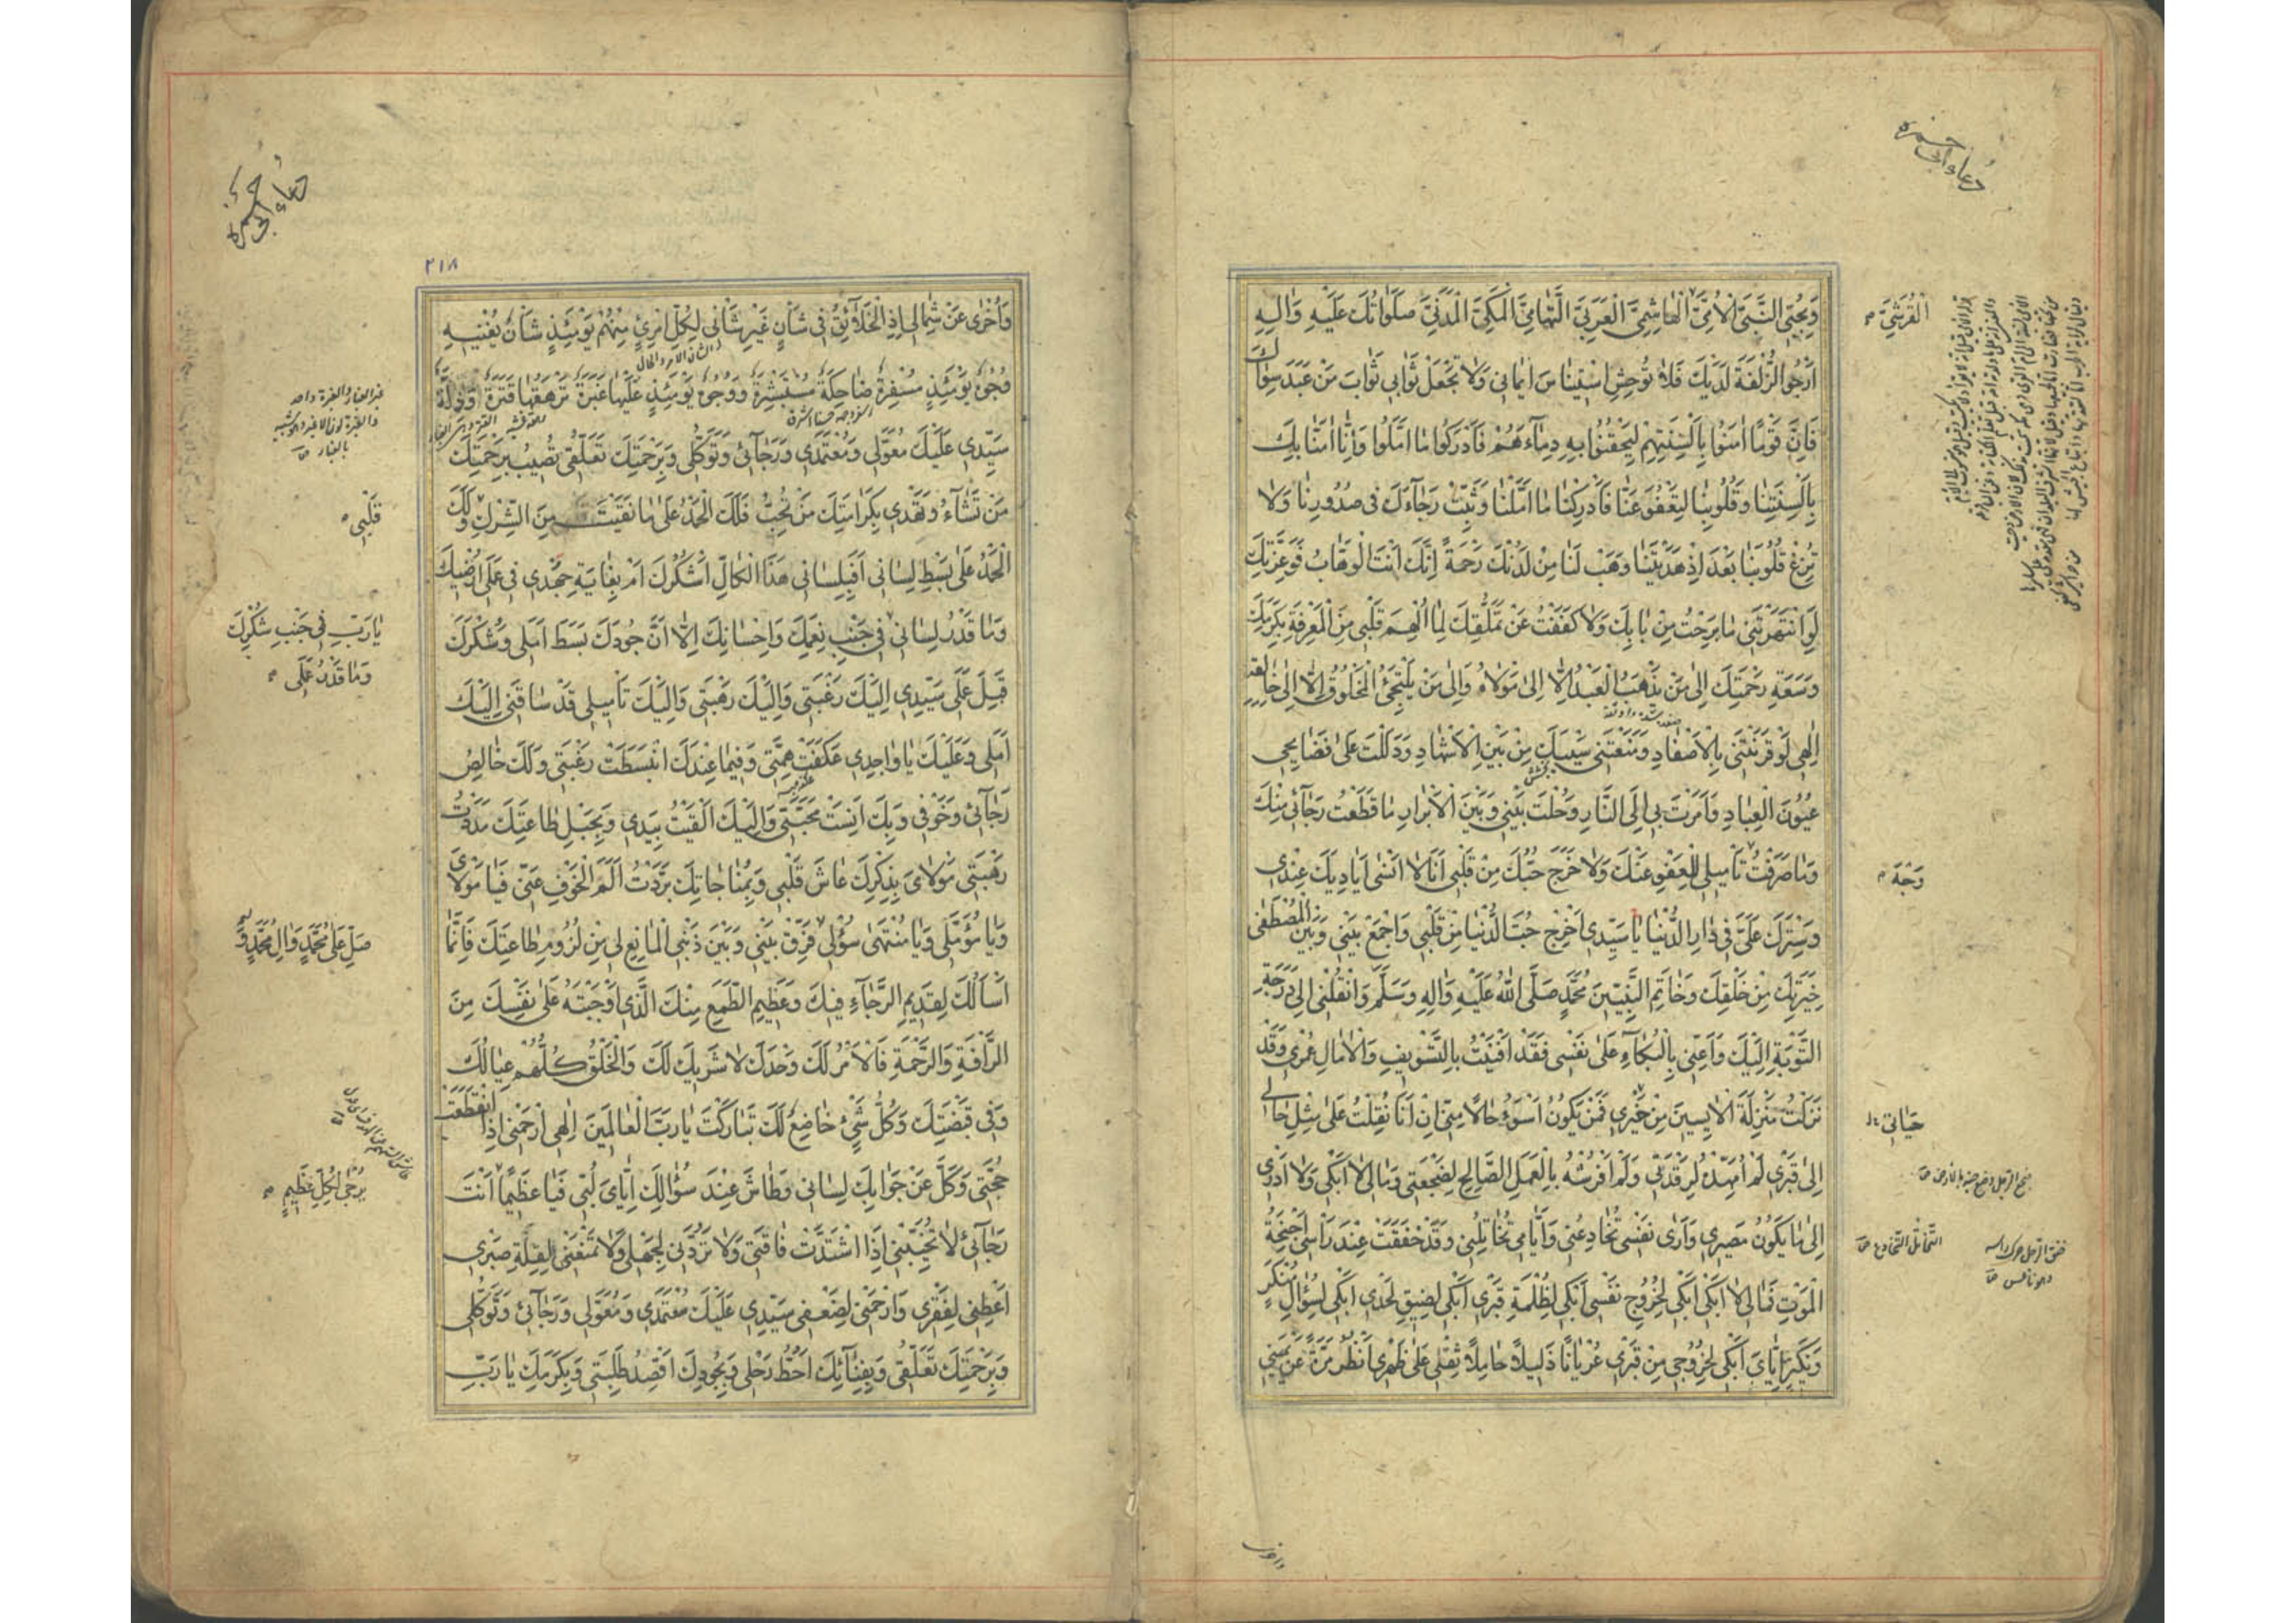 دعاء ابی حمزه
وَبِحُبِّی النَّبِیَّ الْاُمِّیَّ الْهاشِمِیَّ الْعَرَبِیَّ التِّهامِیَّ الْمَکِّیَّ الْمَدَنِیَّ صَلَواتُكَ عَلَیْهِ وَالِهِ
اَرْجُو الزُّلْفَةَ لَدَیْكَ فَلا تُوحِشِ اسْتِیناسَ ایمانی وَلا تَجْعَلْ ثَوابی ثَوابَ مَنْ عَبَدَ سِواكَ
فَاِنَّ قَوْمًا امَنُوا بِاَلْسِنَتِهِمْ لِیَحْقِنُوا بِهِ دِماءَهُمْ فَاَدْرَکُوا ما اَمَّلُوا وَاِنّا امَنّا بِكَ
بِاَلْسِنَتِنا وَقُلُوبِنا لِتَعْفُوَ عَنّا فَاَدْرِکْنا ما اَمَّلْنا وَثَبِّتْ رَجاءَكَ فی صُدُورِنا وَلا
تُزِغْ قُلُوبَنا بَعْدَ اِذْ هَدَیْتَنا وَهَبْ لَنا مِنْ لَدُنْكَ رَحْمَةً اِنَّكَ اَنْتَ الْوَهّابُ فَوَعِزَّتِكَ
لَوِ انْتَهَرْتَنی ما بَرِحْتُ مِنْ بابِكَ وَلا کَفَفْتُ عَنْ تَمَلُّقِكَ لِما اُلْهِمَ قَلْبی مِنَ الْمَعْرِفَةِ بِکَرَمِكَ
وَسَعَةِ رَحْمَتِكَ اِلی مَنْ یَذْهَبُ الْعَبْدُ اِلّا اِلی مَوْلاهُ وَاِلی مَنْ یَلْتَجِئُ الْمَخْلُوقُ اِلّا اِلی خالِقِهِ
اِلهی لَوْ قَرَنْتَنی بِالْاَصْفادِ وَمَنَعْتَنی سَیْبَكَ مِنْ بَیْنِ الْاَشْهادِ وَدَلَلْتَ عَلی فَضایِحی
عُیُونَ الْعِبادِ وَاَمَرْتَ بی اِلَی النّارِ وَحُلْتَ بَیْنی وَبَیْنَ الْاَبْرارِ ما قَطَعْتُ رَجائی مِنْكَ
وَما صَرَفْتُ تَأْمیلی لِلْعَفْوِ عَنْكَ وَلا خَرَجَ حُبُّكَ مِنْ قَلْبی اَنَا لا اَنْسی اَیادِیَكَ عِنْدی
وَسِتْرَكَ عَلَیَّ فی دارِ الدُّنْیا یا سَیِّدی اَخْرِجْ حُبَّ الدُّنْیا مِنْ قَلْبی وَاجْمَعْ بَیْنی وَبَیْنَ الْمُصْطَفی
خِیَرَتِكَ مِنْ خَلْقِكَ وَخاتَمِ النَّبِیِّینَ مُحَمَّدٍ صَلَّی اللّهُ عَلَیْهِ وَالِهِ وَسَلَّمَ وَانْقُلْنی اِلی دَرَجَةِ
التَّوْبَةِ اِلَیْكَ وَاَعِنّی بِالْبُکاءِ عَلی نَفْسی فَقَدْ اَفْنَیْتُ بِالتَّسْویفِ وَالْامالِ عُمْری وَقَدْ
نَزَلْتُ مَنْزِلَةَ الْایِسینَ مِنْ خَیْری فَمَنْ یَکُونُ اَسْوَءُ حالًا مِنّی اِنْ اَنَا نُقِلْتُ عَلی مِثْلِ حالی
اِلی قَبْری لَمْ اُمَهِّدْهُ لِرَقْدَتی وَلَمْ اَفْرُشْهُ بِالْعَمَلِ الصّالِحِ لِضَجْعَتی وَمالی لا اَبْکی وَلا اَدْری
اِلی ما یَکُونُ مَصیری وَاَری نَفْسی تُخادِعُنی وَاَیّامی تُخاتِلُنی وَقَدْ خَفَقَتْ عِنْدَ رَأْسی اَجْنِحَةُ
الْمَوْتِ فَمالی لا اَبْکی اَبْکی لِخُرُوجِ نَفْسی اَبْکی لِظُلْمَةِ قَبْری اَبْکی لِضیقِ لَحْدی اَبْکی لِسُؤالِ مُنْکَرٍ
وَنَکیرٍ اِیّایَ اَبْکی لِخُرُوجی مِنْ قَبْری عُرْیانًا ذَلیلًا حامِلًا ثِقْلی عَلی ظَهْری اَنْظُرُ مَرَّةً عَنْ یَمینی
الْقُرَشِیَّ
وَجْهَ
حَیاتی
التخاتل التخادع
واخری
دعاء ابی حمزه
۲۱۸
وَاُخْری عَنْ شِمالی اِذِ الْخَلائِقُ فی شَأْنٍ غَیْرِ شَأْنی لِکُلِّ امْرِئٍ مِنْهُمْ یَوْمَئِذٍ شَأْنٌ یُغْنیهِ
وُجُوهٌ یَوْمَئِذٍ مُسْفِرَةٌ ضاحِکَةٌ مُسْتَبْشِرَةٌ وَوُجُوهٌ یَوْمَئِذٍ عَلَیْها غَبَرَةٌ تَرْهَقُها قَتَرَةٌ وَذِلَّةٌ
سَیِّدی عَلَیْكَ مُعَوَّلی وَمُعْتَمَدی وَرَجائی وَتَوَکُّلی وَبِرَحْمَتِكَ تَعَلُّقی تُصیبُ بِرَحْمَتِكَ
مَنْ تَشاءُ وَتَهْدی بِکَرامَتِكَ مَنْ تُحِبُّ فَلَكَ الْحَمْدُ عَلی ما نَقَّیْتَ مِنَ الشِّرْكِ وَلَكَ
الْحَمْدُ عَلی بَسْطِ لِسانی اَفَبِلِسانی هَذَا الْکالِّ اَشْکُرُكَ اَمْ بِغایَةِ جَهْدی فی عَمَلی اُرْضیكَ
وَما قَدْرُ لِسانی فی جَنْبِ نِعَمِكَ وَاِحْسانِكَ اِلّا اَنَّ جُودَكَ بَسَطَ اَمَلی وَشُکْرَكَ
قَبِلَ عَمَلی سَیِّدی اِلَیْكَ رَغْبَتی وَاِلَیْكَ رَهْبَتی وَاِلَیْكَ تَأْمیلی قَدْ ساقَنی اِلَیْكَ
اَمَلی وَعَلَیْكَ یا واحِدی عَکَفَتْ هِمَّتی وَفیما عِنْدَكَ انْبَسَطَتْ رَغْبَتی وَلَكَ خالِصُ
رَجائی وَخَوْفی وَبِكَ اَنِسَتْ مَحَبَّتی وَاِلَیْكَ اَلْقَیْتُ بِیَدی وَبِحَبْلِ طاعَتِكَ مَدَدْتُ
رَهْبَتی مَوْلایَ بِذِکْرِكَ عاشَ قَلْبی وَبِمُناجاتِكَ بَرَّدْتُ اَلَمَ الْخَوْفِ عَنّی فَیا مَوْلایَ
وَیا مُؤَمَّلی وَیا مُنْتَهی سُؤْلی فَرِّقْ بَیْنی وَبَیْنَ ذَنْبِیَ الْمانِعِ لی مِنْ لُزُومِ طاعَتِكَ فَاِنَّما
اَسْاَلُكَ لِقَدیمِ الرَّجاءِ فیكَ وَعَظیمِ الطَّمَعِ مِنْكَ الَّذی اَوْجَبْتَهُ عَلی نَفْسِكَ مِنَ
الرَّأْفَةِ وَالرَّحْمَةِ فَالْاَمْرُ لَكَ وَحْدَكَ لا شَریكَ لَكَ وَالْخَلْقُ کُلُّهُمْ عِیالُكَ
وَفی قَبْضَتِكَ وَکُلُّ شَیْءٍ خاضِعٌ لَكَ تَبارَکْتَ یا رَبَّ الْعالَمینَ اِلهی ارْحَمْنی اِذَا انْقَطَعَتْ
حُجَّتی وَکَلَّ عَنْ جَوابِكَ لِسانی وَطاشَ عِنْدَ سُؤالِكَ اِیّایَ لُبّی فَیا عَظیمًا اَنْتَ
رَجائی لا تُخَیِّبْنی اِذَا اشْتَدَّتْ فاقَتی وَلا تَرُدَّنی لِجَهْلی وَلا تَمْنَعْنی لِقِلَّةِ صَبْری
اَعْطِنی لِفَقْری وَارْحَمْنی لِضَعْفی سَیِّدی عَلَیْكَ مُعْتَمَدی وَمُعَوَّلی وَرَجائی وَتَوَکُّلی
وَبِرَحْمَتِكَ تَعَلُّقی وَبِفِنائِكَ اَحُطُّ رَحْلی وَبِجُودِكَ اَقْصِدُ طَلِبَتی وَبِکَرَمِكَ یا رَبِّ
قَلْبی
یا رَبِّ فی جَنْبِ شُکْرِكَ
وَما قَدْرُ عَمَلی
صَلِّ عَلی مُحَمَّدٍ وَالِ مُحَمَّدٍ وَ
یُرْجی لِکُلِّ عَظیمٍ